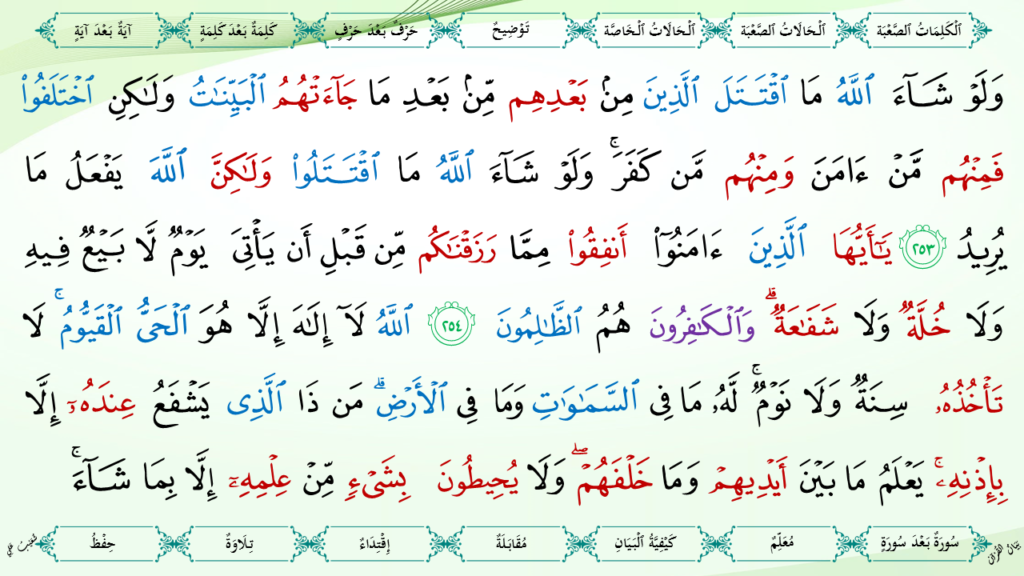 ٱلْكَلِمَاتُ ٱلصَّعْبَة ٱلْحَالَاتُ ٱلصَّعْبَة ٱلْحَالَاتُ ٱلْخَاصَّة تَوْضِيحٌ حَرْفٌ بَعْدَ حَرْفٍ كَلِمَةٌ بَعْدَ كَلِمَةٍ آيَةٌ بَعْدَ آيَةٍ
وَلَوْ شَآءَ ٱللَّهُ مَا ٱقْتَتَلَ ٱلَّذِينَ مِنۢ بَعْدِهِم مِّنۢ بَعْدِ مَا جَآءَتْهُمُ ٱلْبَيِّنَٰتُ وَلَٰكِنِ ٱخْتَلَفُوا۟
فَمِنْهُم مَّنْ ءَامَنَ وَمِنْهُم مَّن كَفَرَ ۚ وَلَوْ شَآءَ ٱللَّهُ مَا ٱقْتَتَلُوا۟ وَلَٰكِنَّ ٱللَّهَ يَفْعَلُ مَا
يُرِيدُ ٢٥٣ يَٰٓأَيُّهَا ٱلَّذِينَ ءَامَنُوٓا۟ أَنفِقُوا۟ مِمَّا رَزَقْنَٰكُم مِّن قَبْلِ أَن يَأْتِىَ يَوْمٌ لَّا بَيْعٌ فِيهِ
وَلَا خُلَّةٌ وَلَا شَفَٰعَةٌ ۗ وَٱلْكَٰفِرُونَ هُمُ ٱلظَّٰلِمُونَ ٢٥٤ ٱللَّهُ لَآ إِلَٰهَ إِلَّا هُوَ ٱلْحَىُّ ٱلْقَيُّومُ ۚ لَا
تَأْخُذُهُۥ سِنَةٌ وَلَا نَوْمٌ ۚ لَّهُۥ مَا فِى ٱلسَّمَٰوَٰتِ وَمَا فِى ٱلْأَرْضِ ۗ مَن ذَا ٱلَّذِى يَشْفَعُ عِندَهُۥٓ إِلَّا
بِإِذْنِهِۦ ۚ يَعْلَمُ مَا بَيْنَ أَيْدِيهِمْ وَمَا خَلْفَهُمْ ۖ وَلَا يُحِيطُونَ بِشَىْءٍ مِّنْ عِلْمِهِۦٓ إِلَّا بِمَا شَآءَ ۚ
سُورَةٌ بَعْدَ سُورَةٍ مُعَلِّمٌ كَيْفِيَّةُ ٱلْبَيَانِ مُقَابَلَةٌ إِقْتِدَاءٌ تِلَاوَةٌ حِفْظٌ